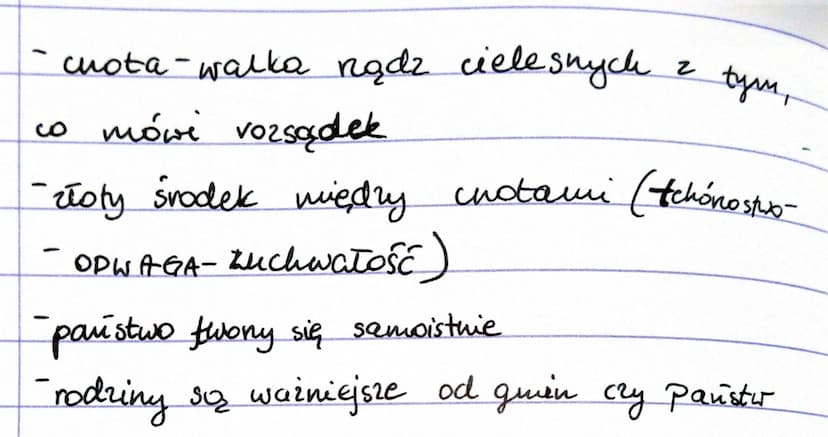 - cnota - walka rządz cielesnych z tym,
co mówi rozsądek
- złoty środek między cnotami (tchórzostwo-
- ODWAGA - zuchwałość)
- państwo tworzy się samoistnie
- rodziny są ważniejsze od gmin czy państw